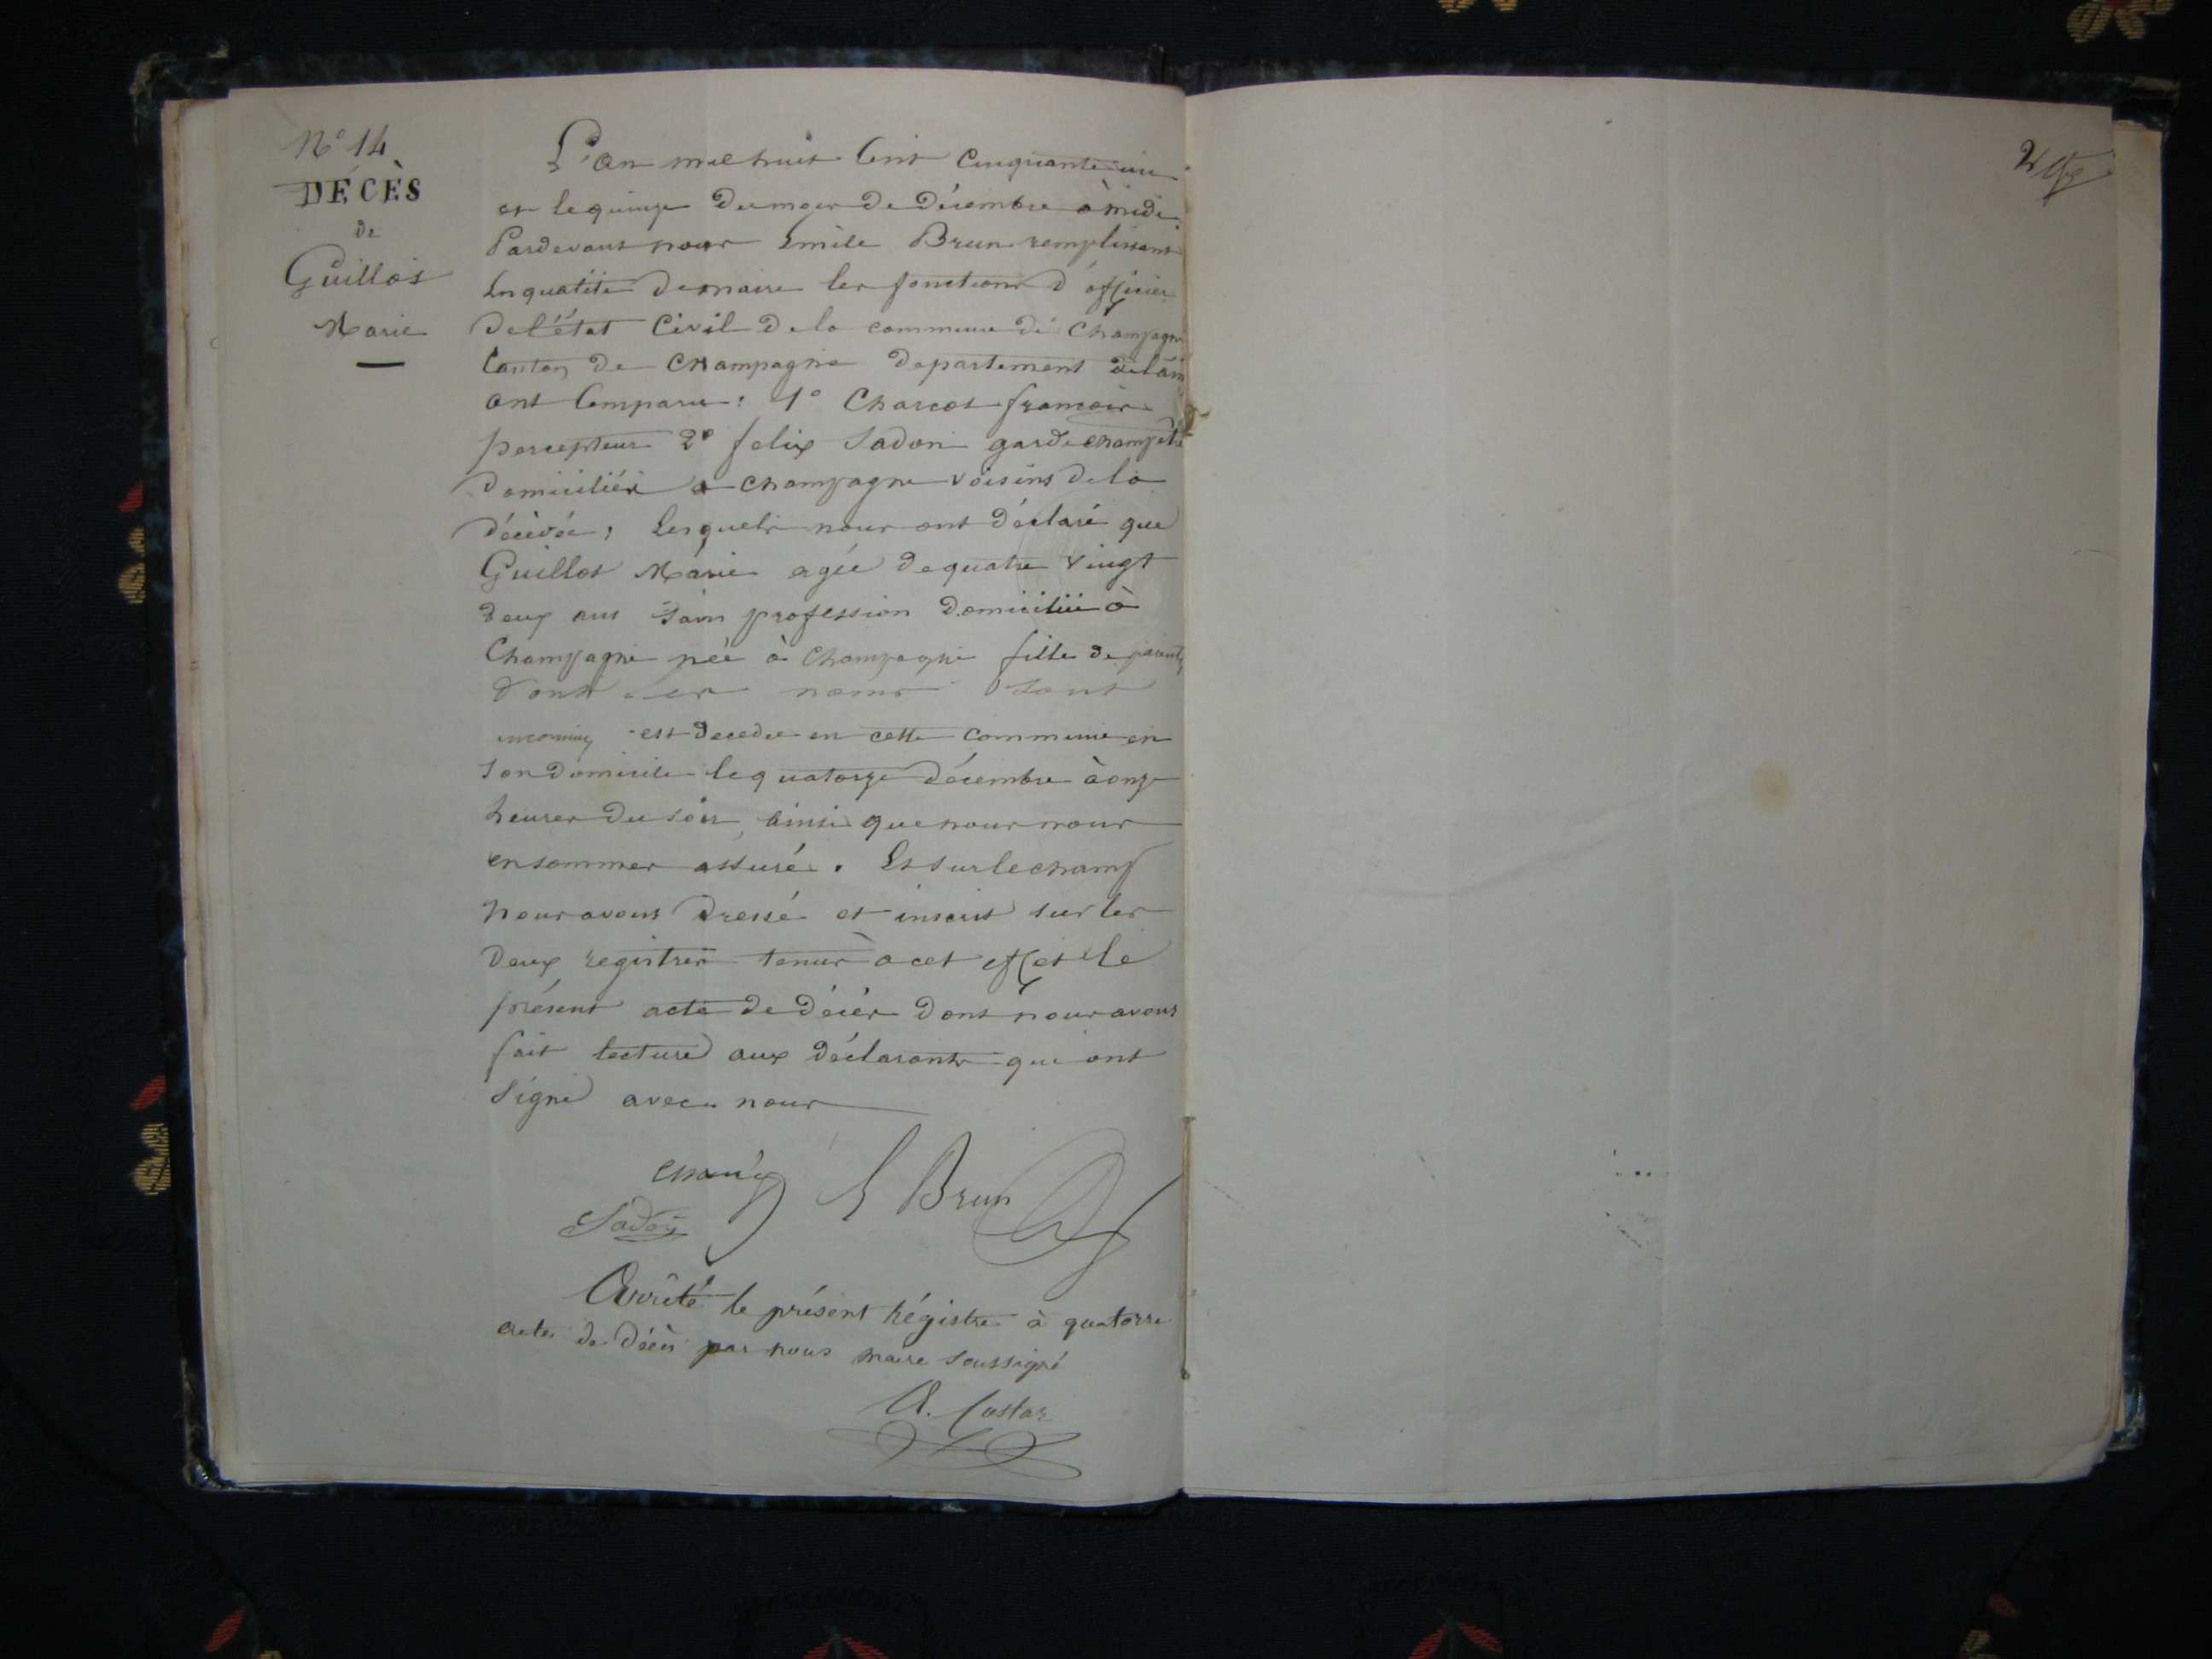 N° 14
DÉCÈS
de
Guillot
Marie
L'an mil huit Cent Cinquante un
et le quinze du mois de Décembre à midi
Pardevant nous Emile Brun remplissant
En qualité de maire les fonctions d'officier
de l'état Civil de la commune de Champagne
Canton de Champagne departement de l'ain
ont Comparu : 1° Charcot francois
percepteur 2° felix Sadon garde champêtre
domiciliés a champagne voisins de la
décédée ; Lesquels nous ont déclaré que
Guillot Marie agée de quatre vingt
deux ans sans profession domiciliée à
Champagne née à Champagne fille de parents
dont les noms sont
inconnus est decedée en cette commune en
son domicile le quatorze décembre à onze
heures du soir, ainsi que nous nous
en sommes assuré. Et sur le champ
nous avons dressé et inscrit sur les
deux registres tenus à cet effet le
présent acte de décès dont nous avons
fait lecture aux déclarants qui ont
signé avec nous
E Brun
Sadon
Arrêté le présent Régistre à quatorze
actes de décès par nous maire soussigné
2